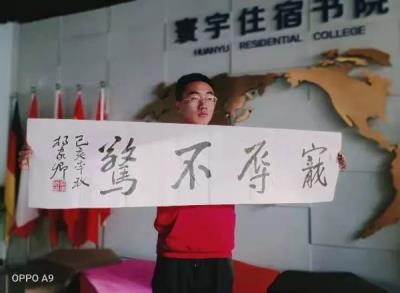 寰宇住宿书院
HUANYU RESIDENTIAL COLLEGE
寵辱不驚
己亥年秋
OPPO A9